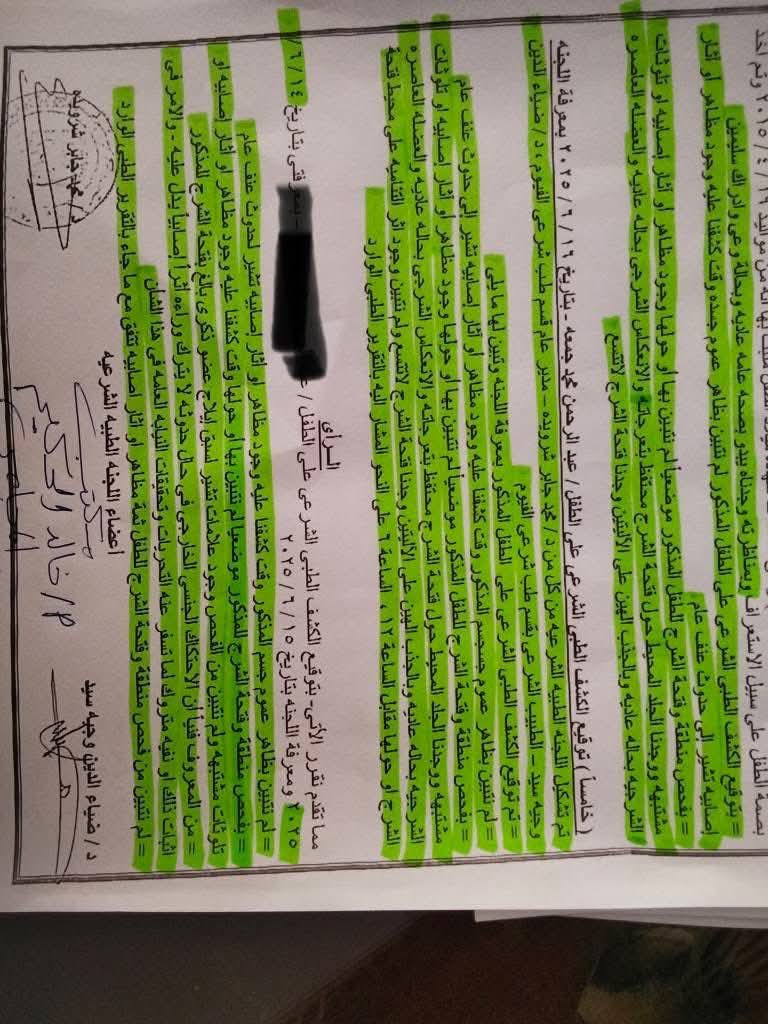 بصمة الطفل على سبيل الاستعراف وبمناظرته وجدناه يبدو بصحه عامه عاديه وبحالة وعى وادراك سليمين
= بتوقيع الكشف الطبى الشرعى على الطفل المذكور لم نتبين بظاهر عموم جسده وقت كشفنا عليه وجود مظاهر او أثار
إصابيه تشير الى حدوث عنف عام
= بفحص منطقة وفتحة الشرج للطفل المذكور موضعياً لم نتبين بها او حولها وجود مظاهر او أثار إصابيه او تلوثات
مشتبهه ووجدنا الجلد المحيط حول فتحة الشرج محتفظ بتعرجاته والانعكاس الشرجى بحاله عاديه والعضله العاصره
الشرجيه بحاله عاديه وبالجذب الهين على الأليتين وجدنا فتحة الشرج لاتتسع
( خامساً ) توقيع الكشف الطبى الشرعى على الطفل / عبد الرحمن محمد جمعه - بتاريخ ١٦ / ٦ / ٢٠٢٥ بمعرفة اللجنه
تم تشكيل اللجنه الطبيه الشرعيه من كل من د / محمد جابر شرويده - مدير عام قسم طب شرعى الفيوم ، د / ضياء الدين
وجيه سيد - الطبيب الشرعى بقسم طب شرعى الفيوم
= تم توقيع الكشف الطبى الشرعى على الطفل المذكور بمعرفة اللجنه وتبين لها ما يلى
= لم نتبين بظاهر عموم جسم المذكور وقت كشفنا عليه وجود مظاهر او أثار إصابيه تشير الى حدوث عنف عام
= بفحص منطقة وفتحة الشرج للطفل المذكور موضعياً لم نتبين بها او حولها وجود مظاهر او أثار إصابيه او تلوثات
مشتبهه ووجدنا الجلد المحيط حول فتحة الشرج محتفظ بتعرجاته والانعكاس الشرجى بحاله عاديه والعضله العاصره
الشرجيه بحاله عاديه وبالجذب الهين على الأليتين وجدنا فتحة الشرج لاتتسع ولم نتبين وجود اثر التئاميه على محيط فتحة
الشرج او حولها مقابل الساعة ١٢ ، الساعة ٦ على النحو المشار اليه بالتقرير الطبى الوارد
الــرأى
مما تقدم نقرر الآتى- بتوقيع الكشف الطبى الشرعى على الطفل / - بمعرفتى بتاريخ ١٤ / ٦ /
٢٠٢٥ ومعرفة اللجنه بتاريخ ١٥ / ٦ / ٢٠٢٥
= لم نتبين بظاهر عموم جسم المذكور وقت كشفنا عليه وجود مظاهر او أثار إصابيه تشير لحدوث عنف عام
= بفحص منطقة وفتحة الشرج للمذكور موضعياً لم نتبين بها او حولها وقت كشفنا عليه وجود مظاهر او أثار إصابيه او
تلوثات مشتبهه ولم نتبين من الفحص وجود علامات تشير لسبق إيلاج عضو ذكرى بالغ بفتحة الشرج للمذكور
= من المعروف فنياً ان الاحتكاك الجنسى الخارجى فى حال حدوثه لا يترك وراءه أثراً إصابياً يدل عليه - والامر فى
اثبات ذلك او نفيه متروك لما تسفر عنه التحريات وتحقيقات النيابه العامه فى هذا الشأن
= لم نتبين من فحص منطقة وفتحة الشرج للطفل ثمة مظاهر او أثار اصابيه تتفق مع ما جاء بالتقرير الطبى الوارد
أعضاء اللجنه الطبيه الشرعيه
د / ضياء الدين وجيه سيد
د / محمد جابر شرويده
مكتب
م / خالد الحكيم
المحامى